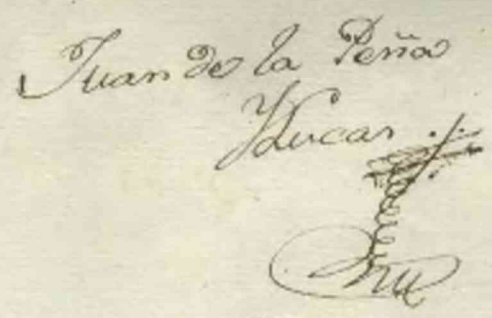 Juan de la Peña
Y Lucas